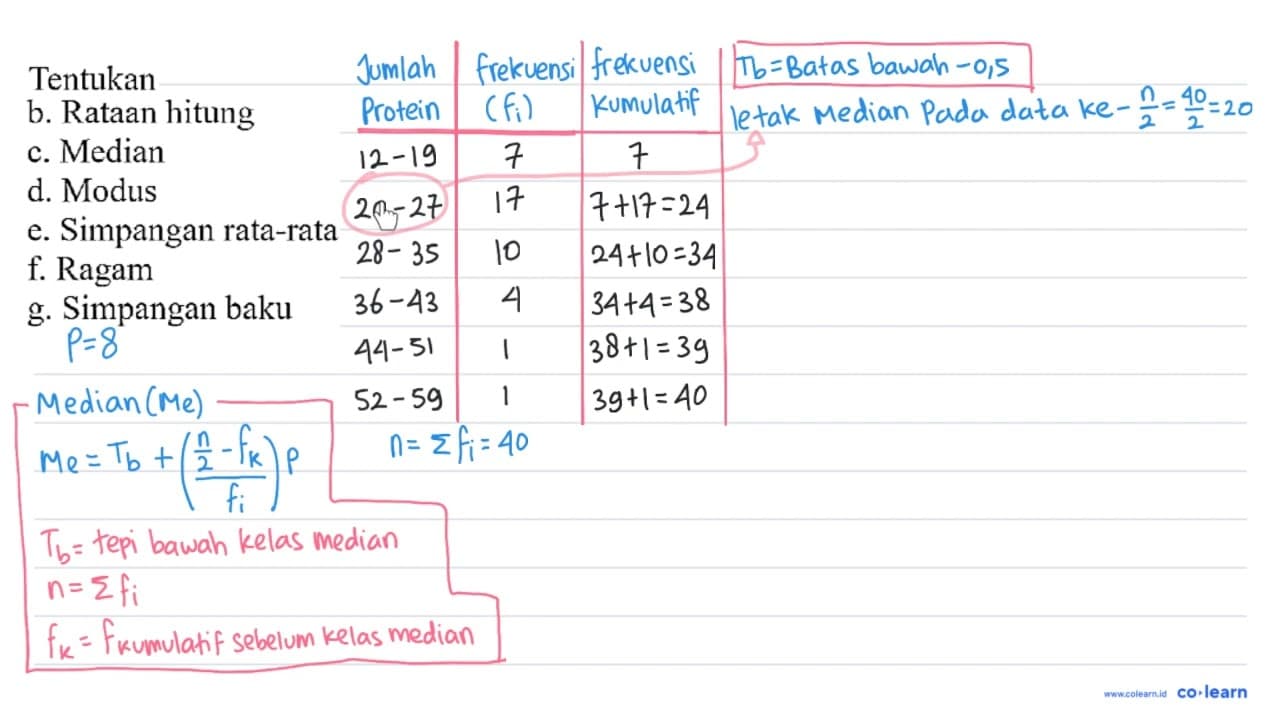 Tentukan
b. Rataan hitung
c. Median
d. Modus
e. Simpangan rata-rata
f. Ragam
g. Simpangan baku
P=8
Jumlah Protein | frekuensi (fi) | frekuensi kumulatif
12-19 | 7 | 7
20-27 | 17 | 7+17=24
28-35 | 10 | 24+10=34
36-43 | 4 | 34+4=38
44-51 | 1 | 38+1=39
52-59 | 1 | 39+1=40
n=Σfi=40
Tb=Batas bawah-0,5
letak Median Pada data ke-n/2=40/2=20
Median(Me)
Me=Tb+((n/2-fk)/fi)P
Tb=tepi bawah kelas median
n=Σfi
fk=fkumulatif sebelum kelas median
www.colearn.id co·learn